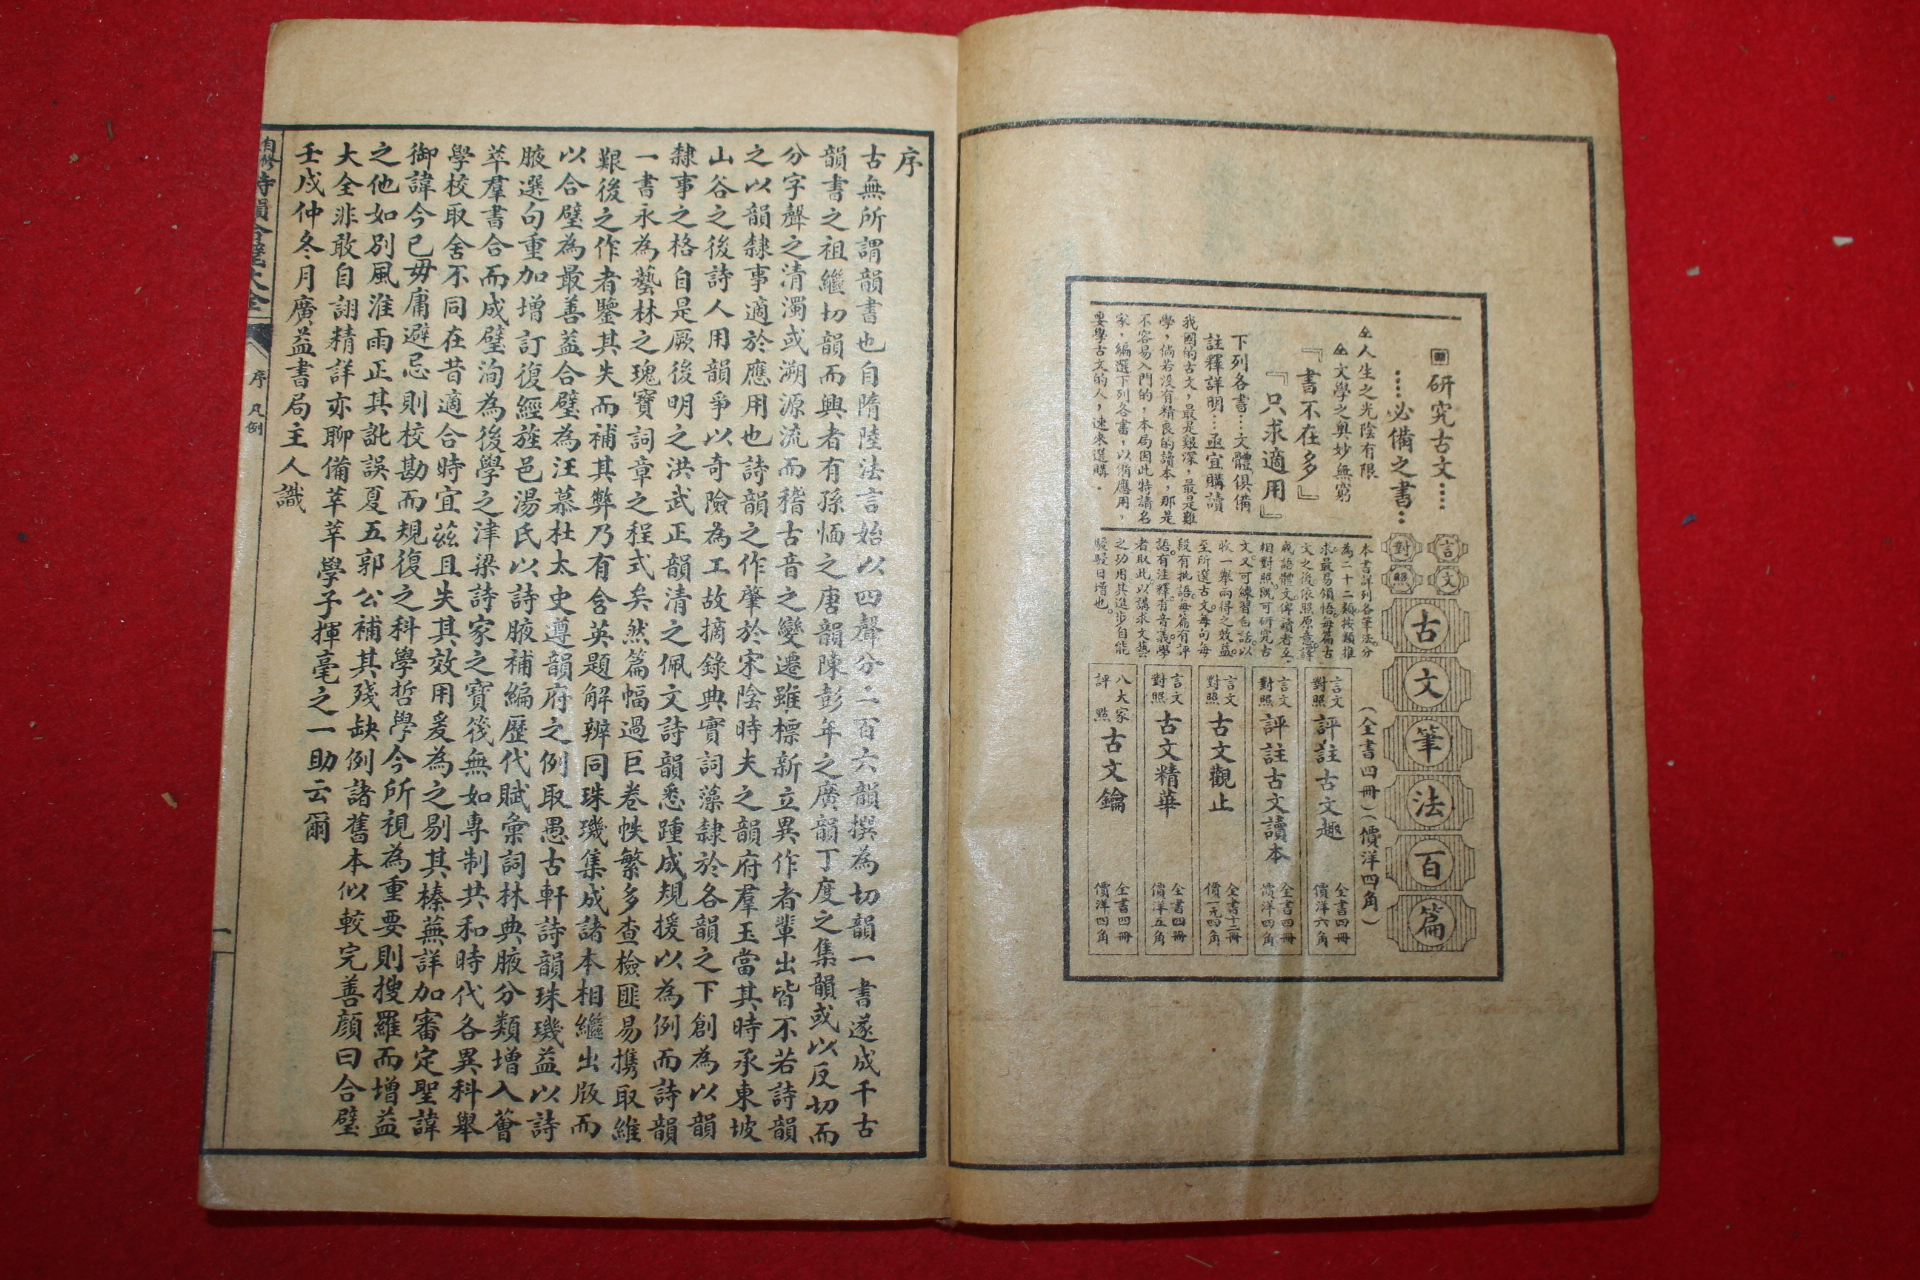 研究古文‥‥
‥‥必備之書‥
人生之光陰有限
文學之奧妙無窮
『書不在多』
『只求適用』
下列各書‥‥文體俱備
註釋詳明‥‥亟宜購讀
我國的古文，最是艱深，最是難
學，倘若沒有精良的讀本，那是
不容易入門的，本局因此特請名
家，編選下列各書，以備應用，
要學古文的人，速來選購．
言文
對照
古文筆法百篇
(全書四冊)(價洋四角)
本書詳列各筆法。分
為二十二類。按類推
求。最易領悟。每篇古
文之後。依照原意。譯
成語體文。俾讀者互
相對照。既可研究古
文。又可練習白話。以
收一舉兩得之效益。
至所選古文。每句每
段有批語。每篇有評
語。有注釋。有音義。學
者取此。以講求文藝
之功用。其進步自能
駸駸日增也。
言文
對照
評註古文趣
全書四冊
價洋六角
言文
對照
評註古文讀本
全書四冊
價洋四角
言文
對照
古文觀止
全書十二冊
價一元四角
言文
對照
古文精華
全書四冊
價洋五角
八大家
評點
古文鑰
全書四冊
價洋四角
序
古無所謂韻書也自隋陸法言始以四聲分二百六韻撰為切韻一書遂成千古
韻書之祖繼切韻而興者有孫愐之唐韻陳彭年之廣韻丁度之集韻或以反切而
分字聲之清濁或溯源流而稽古音之變遷雖標新立異作者輩出皆不若詩韻
之以韻隸事適於應用也詩韻之作肇於宋陰時夫之韻府羣玉當其時承東坡
山谷之後詩人用韻爭以奇險為工故摘錄典實詞藻隸於各韻之下創為以韻
隸事之格自是厥後明之洪武正韻清之佩文詩韻悉踵成規援以為例而詩韻
一書永為藝林之瑰寶詞章之程式矣然篇幅過巨卷帙繁多查檢匪易携取維
艱後之作者鑒其失而補其弊乃有含英題解辨同珠璣集成諸本相繼出版而
以合璧為最善益合璧為汪慕杜太史遵韻府之例取愚古軒詩韻珠璣益以詩
腋選句重加增訂復經旌邑湯氏以詩腋補編歷代賦彙詞林典腋分類增入薈
萃羣書合而成璧洵為後學之津梁詩家之寶筏無如專制共和時代各異科舉
學校取舍不同在昔適合時宜茲且失其效用爰為之剔其榛蕪詳加審定聖諱
御諱今已毋庸避忌則校勘而規復之科學哲學今所視為重要則搜羅而增益
之他如別風淮雨正其訛誤夏五郭公補其殘缺例諸舊本似較完善顏曰合璧
大全非敢自詡精詳亦聊備莘莘學子揮毫之一助云爾
壬戌仲冬月廣益書局主人識
詩韻合璧大全
序
凡例
一